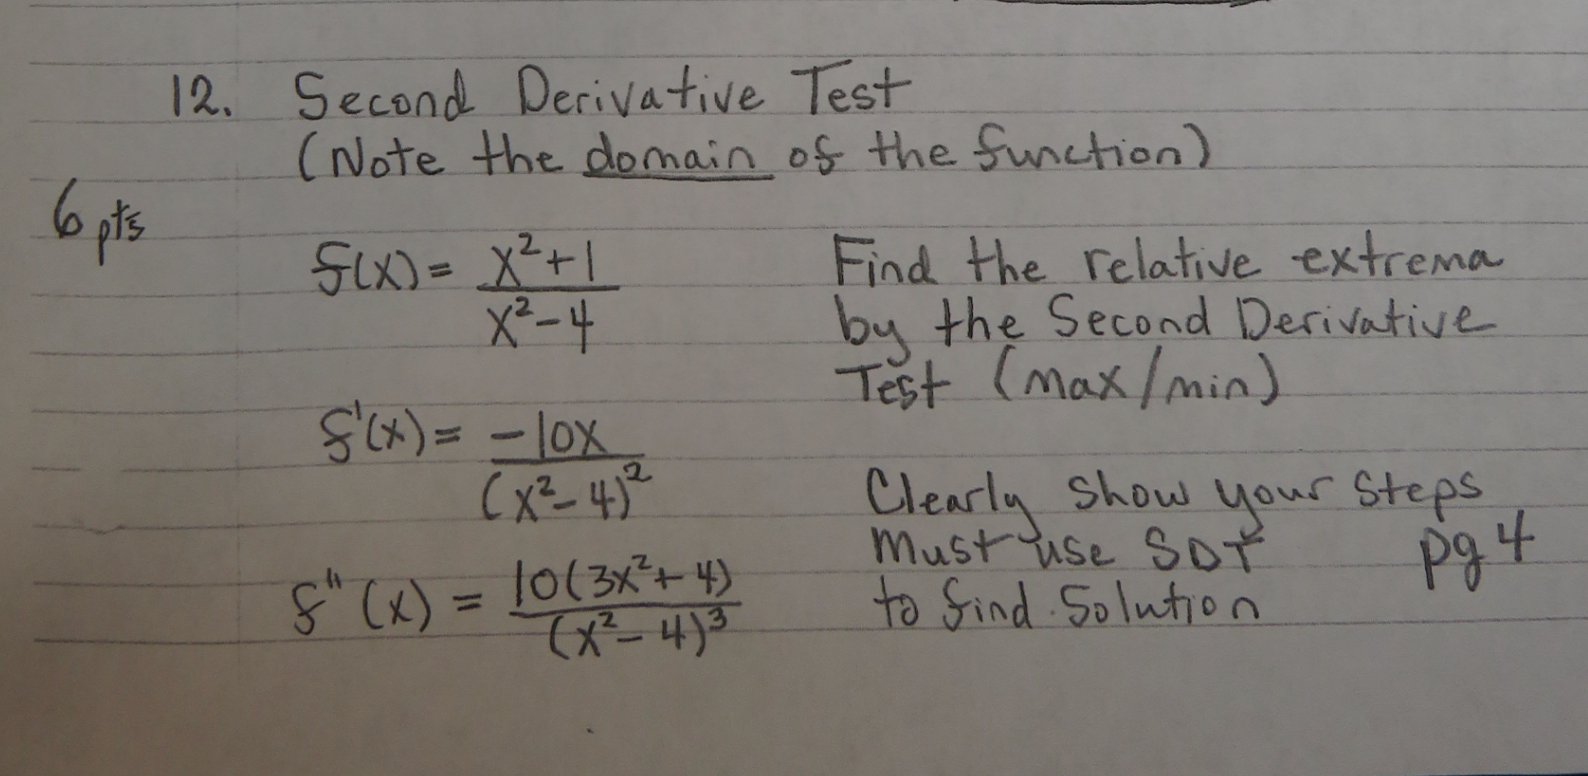 12. Second Derivative Test
(Note the domain of the function)
6 pts
f(x) = x²+1 / x²-4
Find the relative extrema
by the Second Derivative
Test (max/min)
f'(x) = -10x / (x²-4)²
Clearly show your steps
must use SDT
pg 4
to find solution
f"(x) = 10(3x²+4) / (x²-4)³